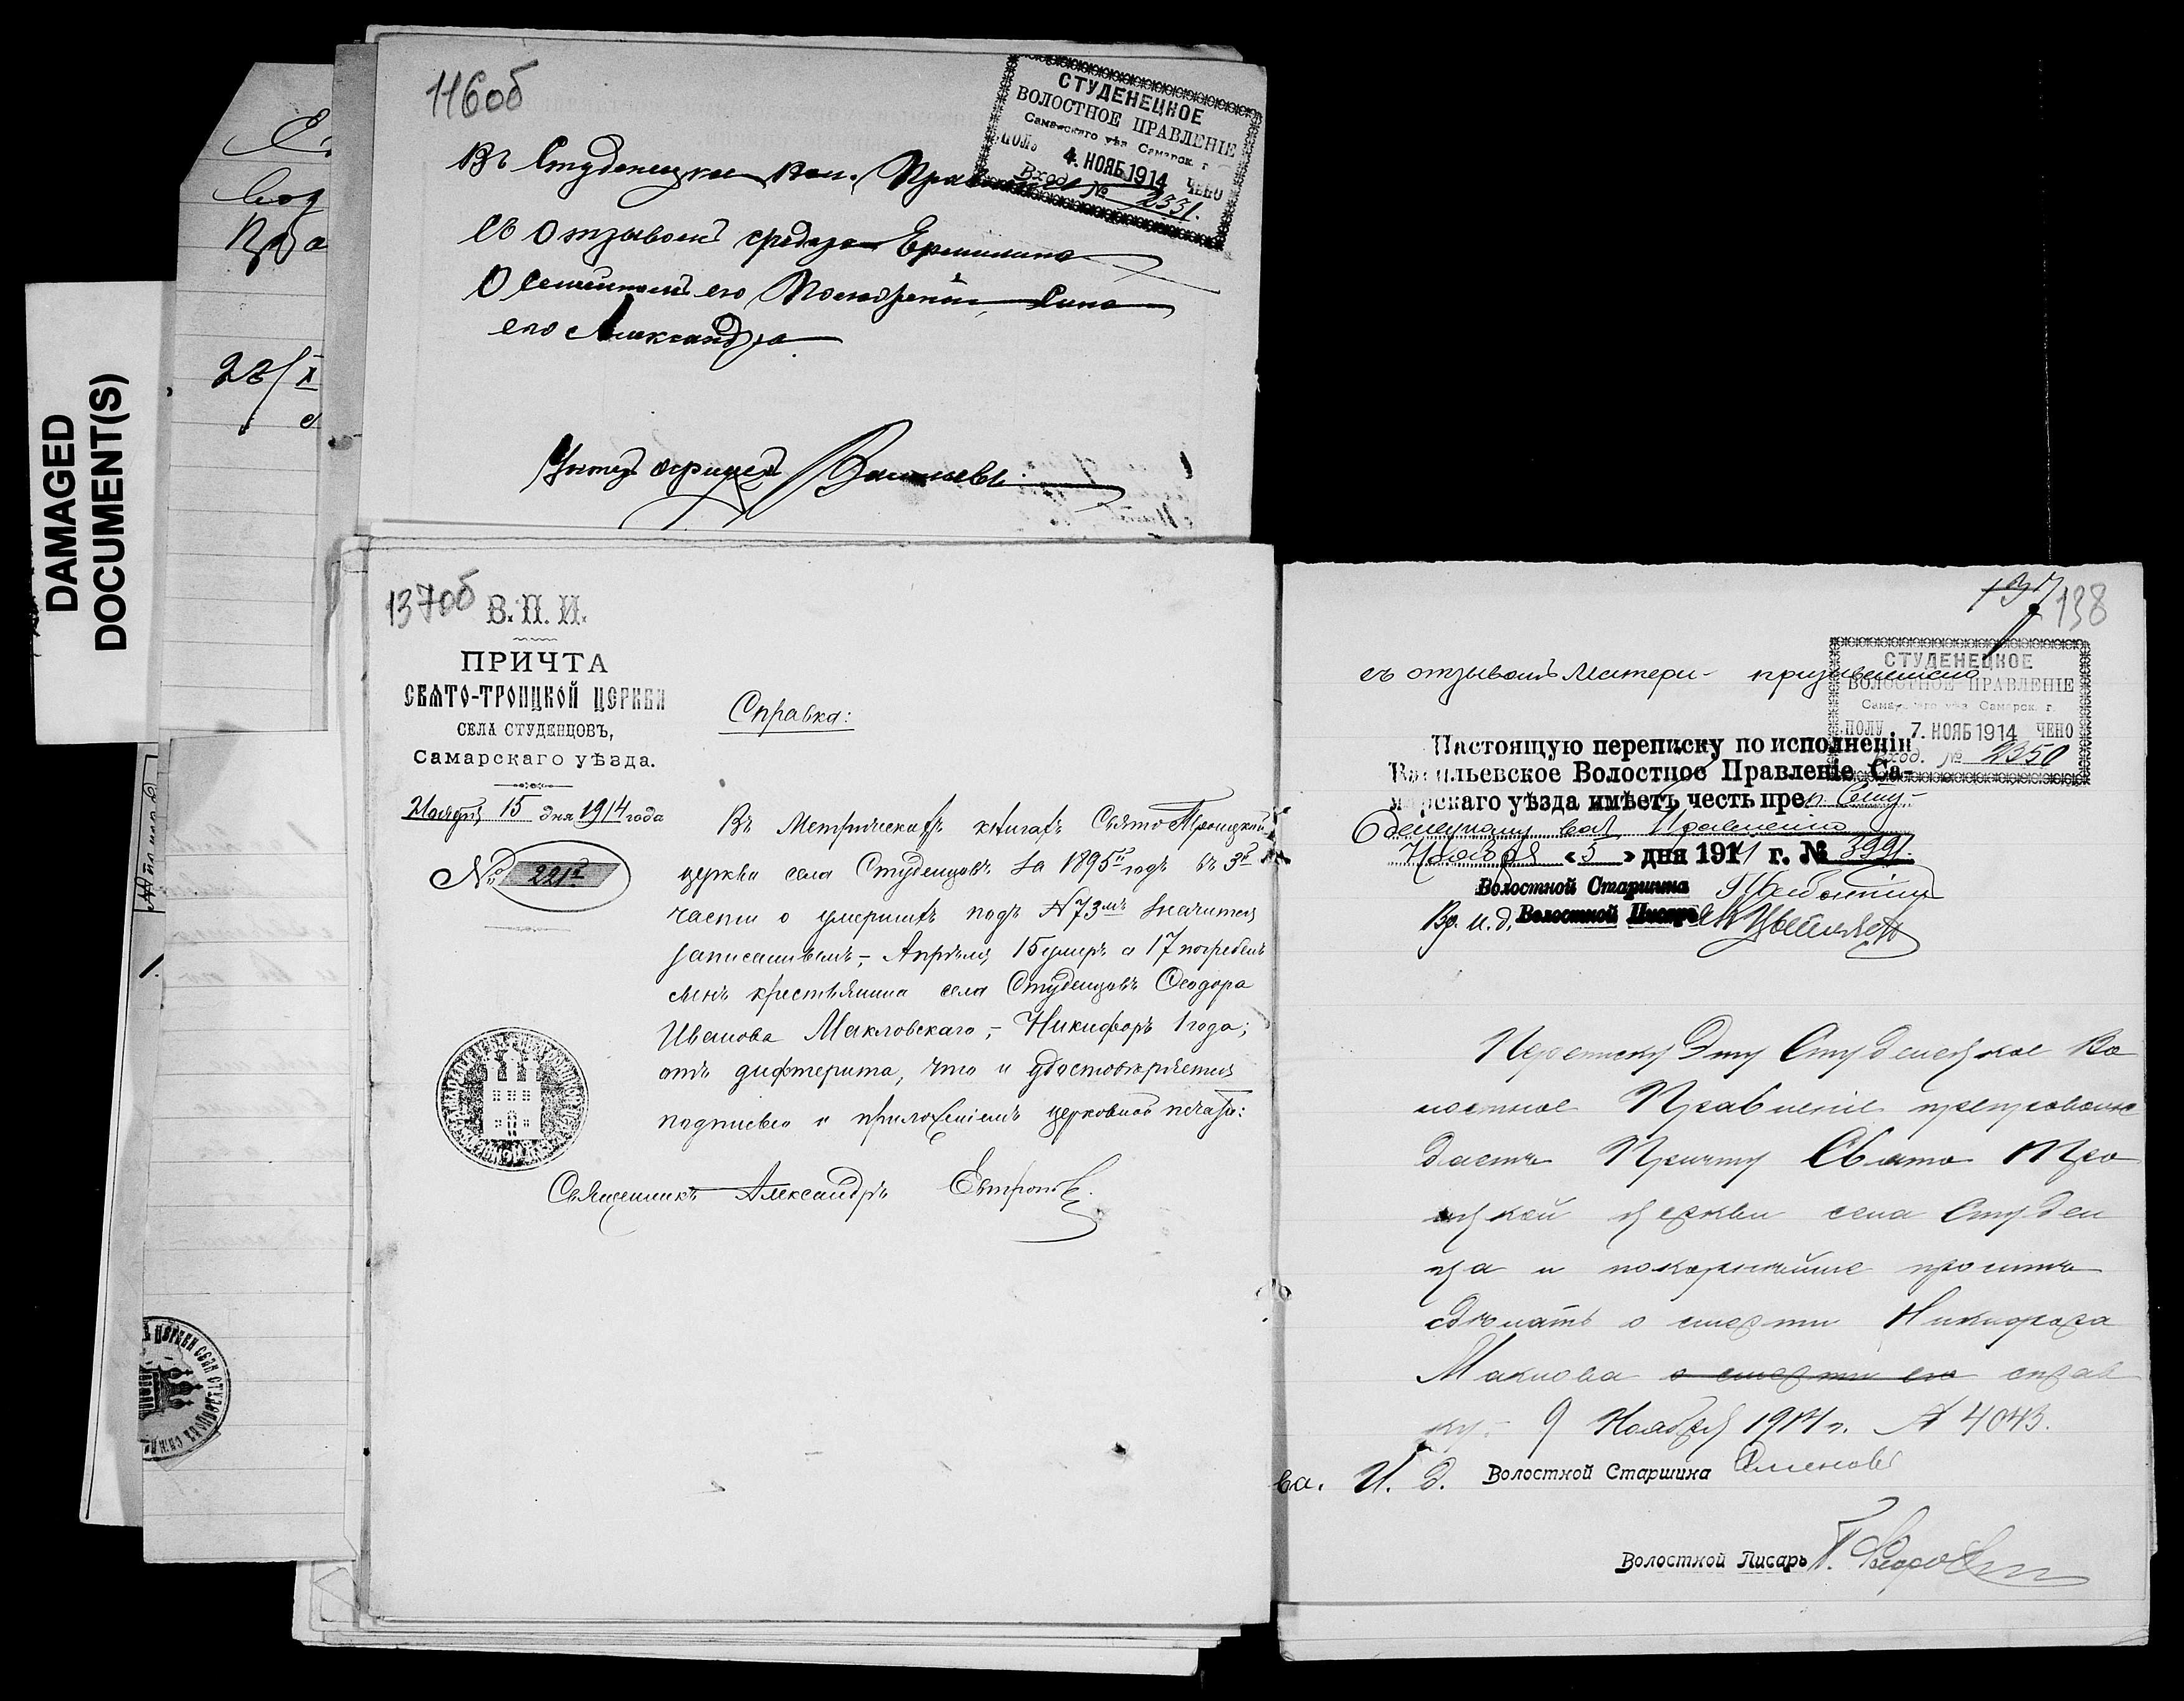 DAMAGED
DOCUMENT(S)
116об
СТУДЕНЕЦКОЕ
ВОЛОСТНОЕ ПРАВЛЕНІЕ
Самарскаго уѣз. Самарск. г.
ПОЛУ 4. НОЯБ 1914 ЧЕНО
Вход. № 2331.
Въ Студенецкое Вол. Правленіе
Съ отзывомъ
О семейномъ его
его Александра
137об
В. П. И.
ПРИЧТА
СВЯТО-ТРОИЦКОЙ ЦЕРКВИ
СЕЛА СТУДЕНЦОВЪ,
Самарскаго уѣзда.
Ноября 15 дня 1914 года
№ 221
Справка:
Въ Метрическихъ книгахъ Свято Троицкой
церкви села Студенцовъ за 1895й годъ въ 3й
части о умершихъ подъ №73мъ значится
записаннымъ,- Апрѣля 15 умеръ а 17 погребенъ
сынъ крестьянина села Студенцовъ Ѳеодора
Иванова Макловскаго,- Никифоръ 1 года;
отъ дифтерита, что и удостовѣряется
подписью и приложеніемъ церковной печати:
Священникъ Александръ
137
138
съ отзывомъ Матери призваннаго
СТУДЕНЕЦКОЕ
ВОЛОСТНОЕ ПРАВЛЕНІЕ
Самарскаго уѣз. Самарск. г.
ПОЛУ 7. НОЯБ 1914 ЧЕНО
Вход. № 2350
Настоящую переписку по исполненіи
Васильевское Волостное Правленіе Са-
марскаго уѣзда имѣетъ честь преп. Сту-
денецкому вол. Правленію
Ноября «5» дня 1914 г. № 3991.
Волостной Старшина
Вр. и. д. Волостной Писарь
Переписку эту Студенецкое Во
лостное Правленіе препровож
даетъ Причту Свято Тро
ицкой церкви села Студен
ца и покорнѣйше проситъ
сдѣлать о смерти Никифора
Маклова о смерти его справ
ку.- 9 Ноября 1914 г. № 4043.
ва. И. д. Волостной Старшина Семеновъ
Волостной Писарь